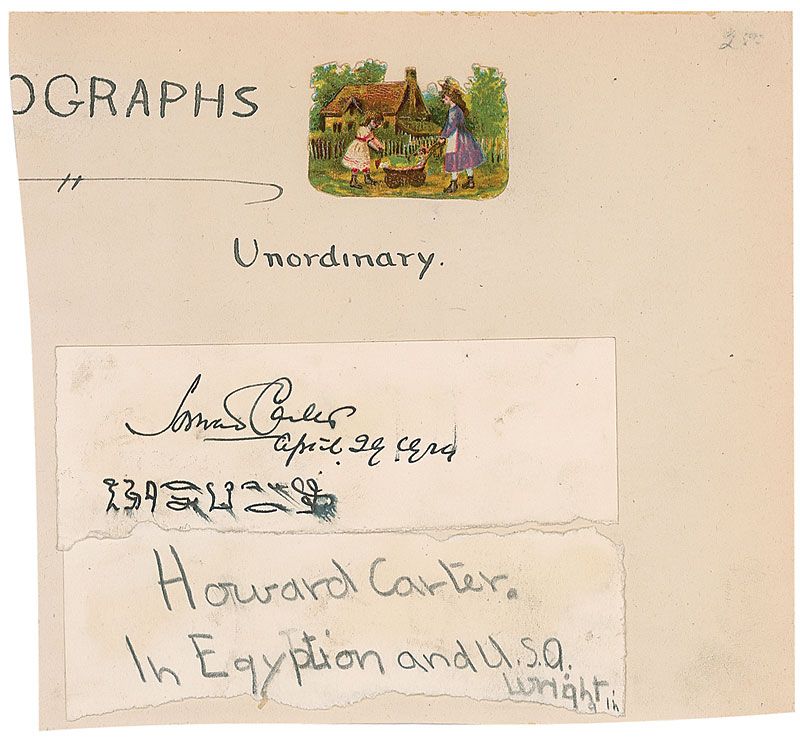 OGRAPHS
"
Unordinary.
Howard Carter
April 29 1924
Howard Carter.
In Egyption and U.S.A.
Wright in